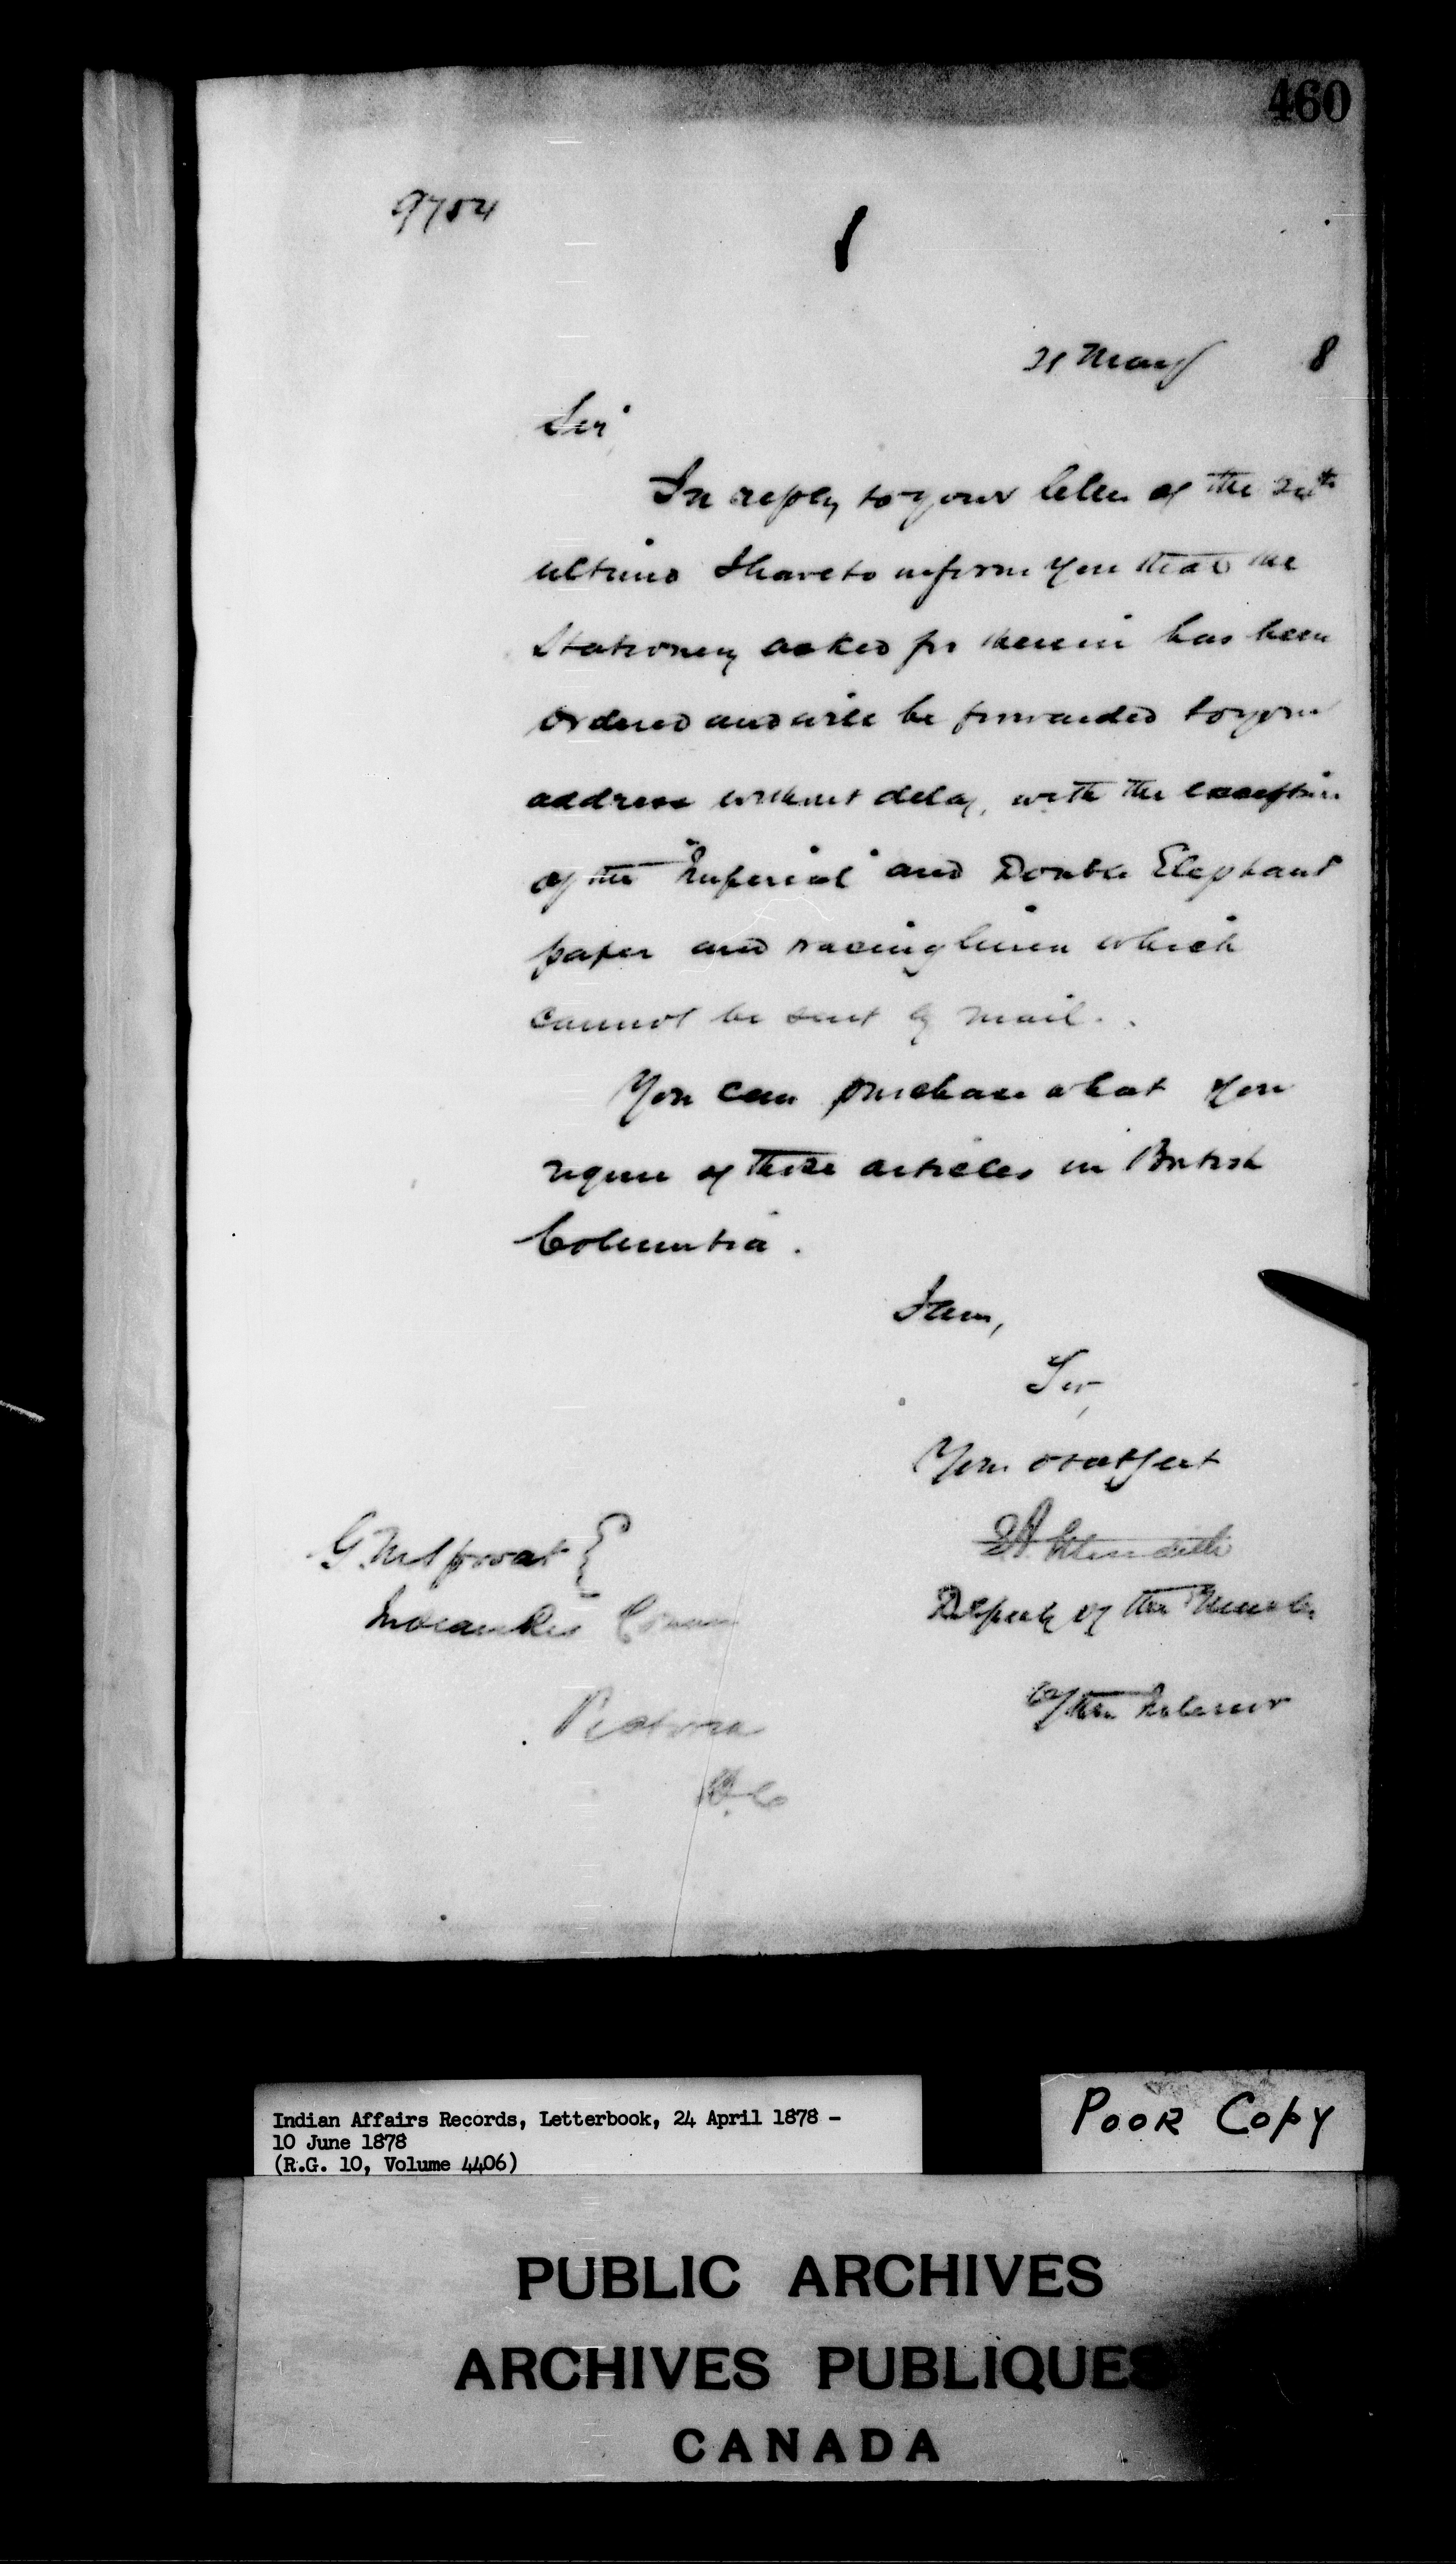 460
9754
21 May 8
Sir
In reply to your letter of the
ultimo I have to inform you that the
Stationery asked for therein has been
ordered and will be forwarded to your
address without delay, with the exception
of the "Imperial" and Double Elephant
paper and tracing linen which
cannot be sent by mail.
You can purchase what you
require of these articles in British
Columbia.
I am,
Sir,
Your obedt Servt
Deputy of the Minister
of the Interior
G. M. Sproat
Indian Res Comm
Victoria
B.C
Indian Affairs Records, Letterbook, 24 April 1878 -
10 June 1878
(R.G. 10, Volume 4406)
POOR COPY
PUBLIC ARCHIVES
ARCHIVES PUBLIQUES
CANADA